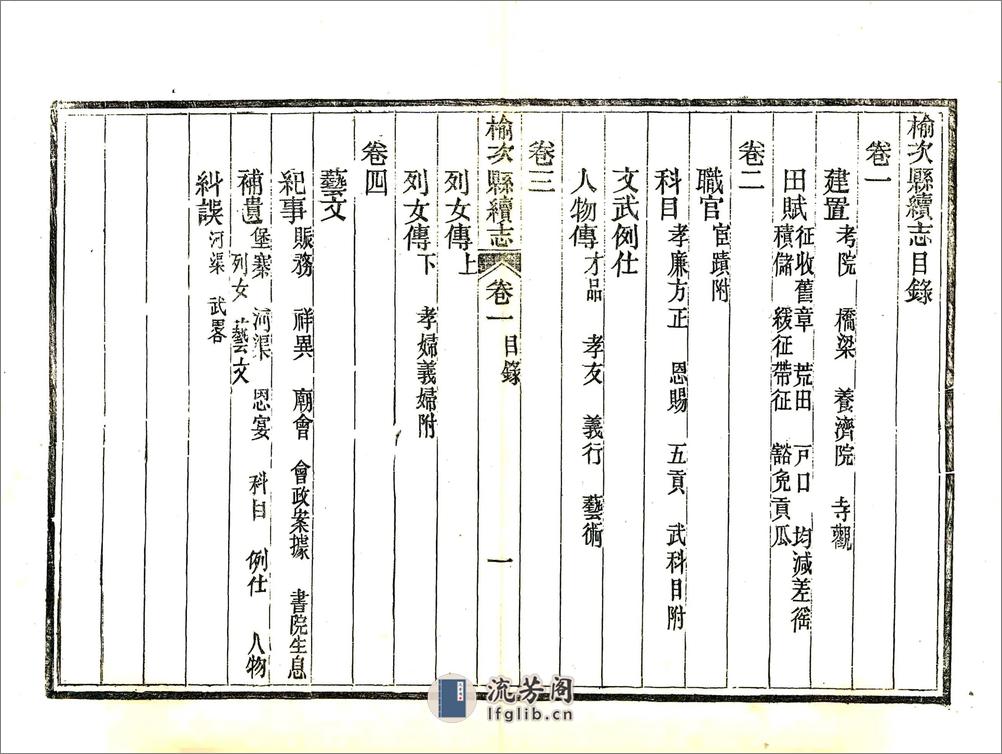 榆次縣續志目錄
卷一
建置 考院 橋梁 養濟院 寺觀
田賦 征收舊章 荒田 戸口 均減差徭
積儲 緩征帶征 豁免貢瓜
卷二
職官 宦蹟附
科目 孝廉方正 恩賜 五貢 武科目附
文武例仕
人物傳 才品 孝友 義行 藝術
卷三
榆次縣續志 卷一 目錄 一
列女傳上
列女傳下 孝婦義婦附
卷四
藝文
紀事 賑務 祥異 廟會 會政案據 書院生息
補遺 堡寨 河渠 恩宴 科目 例仕 人物
列女 藝文
糾誤 河渠 武畧
流芳阁
lfglib.cn